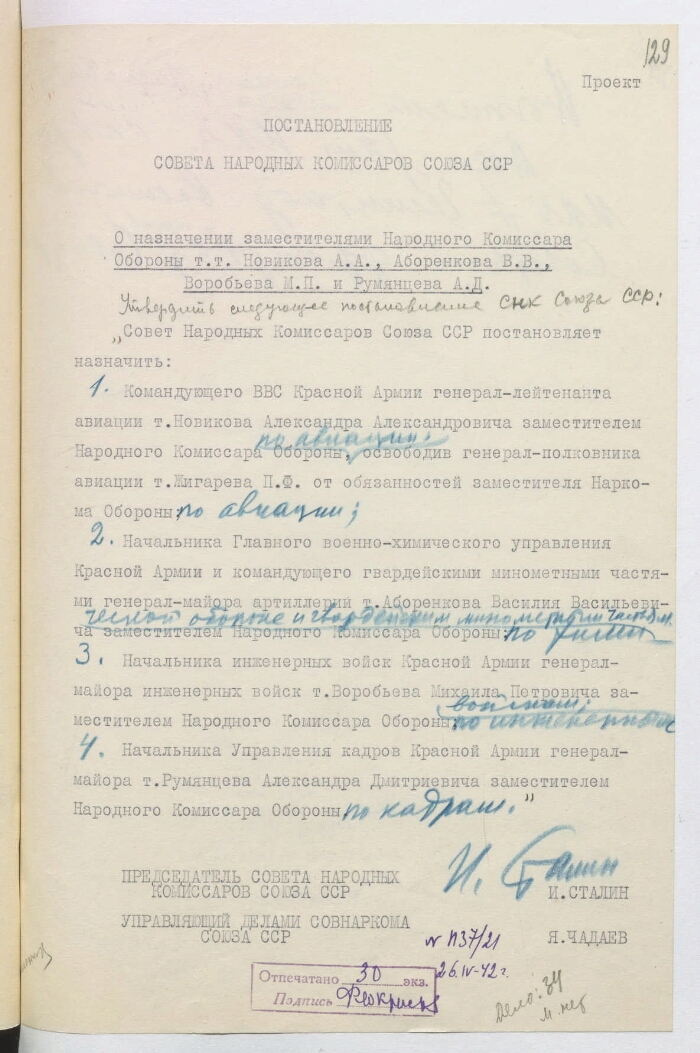 129
Проект
ПОСТАНОВЛЕНИЕ
СОВЕТА НАРОДНЫХ КОМИССАРОВ СОЮЗА ССР
О назначении заместителями Народного Комиссара
Обороны т.т. Новикова А.А., Аборенкова В.В.,
Воробьева М.П. и Румянцева А.Д.
Утвердить следующее постановление СНК Союза ССР:
„Совет Народных Комиссаров Союза ССР постановляет
назначить:
1. Командующего ВВС Красной Армии генерал-лейтенанта
авиации т.Новикова Александра Александровича заместителем
по авиации,
Народного Комиссара Обороны, освободив генерал-полковника
авиации т.Жигарева П.Ф. от обязанностей заместителя Нарко-
ма Обороны по авиации;
2. Начальника Главного военно-химического управления
Красной Армии и командующего гвардейскими минометными частя-
ми генерал-майора артиллерии т.Аборенкова Василия Васильеви-
ческой обороне и гвардейским минометным частям.
ча заместителем Народного Комиссара Обороны по хими-
3. Начальника инженерных войск Красной Армии генерал-
майора инженерных войск т.Воробьева Михаила Петровича за-
войскам;
местителем Народного Комиссара Обороны по инженерным
4. Начальника Управления кадров Красной Армии генерал-
майора т.Румянцева Александра Дмитриевича заместителем
Народного Комиссара Обороны по кадрам."
И. Сталин
ПРЕДСЕДАТЕЛЬ СОВЕТА НАРОДНЫХ
КОМИССАРОВ СОЮЗА ССР И.СТАЛИН
УПРАВЛЯЮЩИЙ ДЕЛАМИ СОВНАРКОМА
СОЮЗА ССР Я.ЧАДАЕВ
N П37/21
26.IV-42г.
Отпечатано 30 экз.
Подпись
Дело: